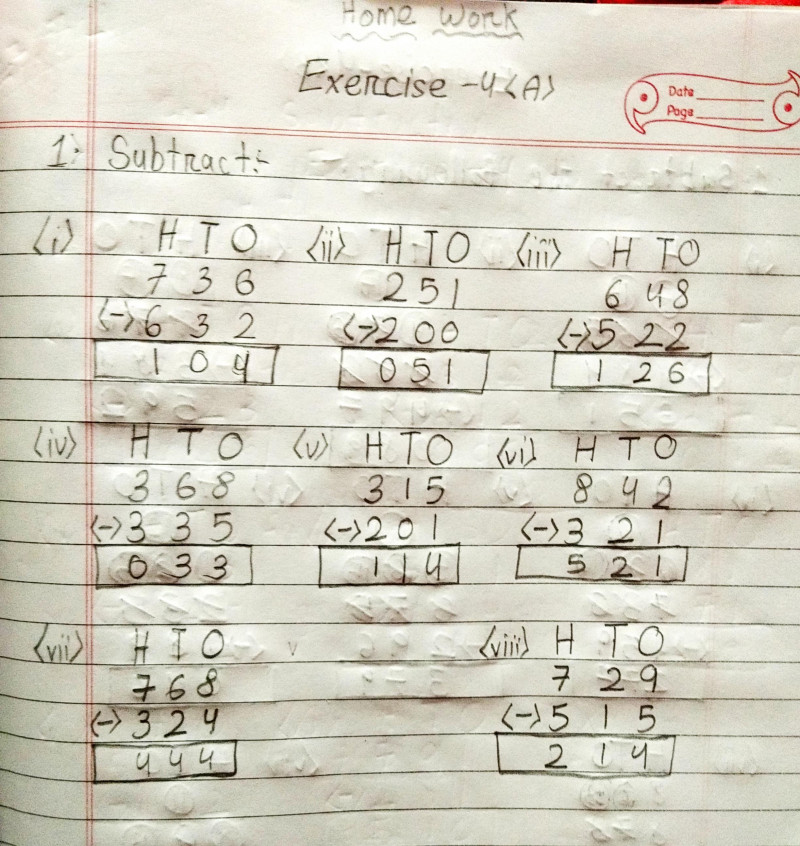 Home Work
Exercise -4<A>
Date
Page
1:- Subtract:-
<i> H T O <ii> H T O <iii> H T O
7 3 6 2 5 1 6 4 8
<-> 6 3 2 <-> 2 0 0 <-> 5 2 2
1 0 4 0 5 1 1 2 6
<iv> H T O <v> H T O <vi> H T O
3 6 8 3 1 5 8 4 2
<-> 3 3 5 <-> 2 0 1 <-> 3 2 1
0 3 3 1 1 4 5 2 1
<vii> H T O <viii> H T O
7 6 8 7 2 9
<-> 3 2 4 <-> 5 1 5
4 4 4 2 1 4